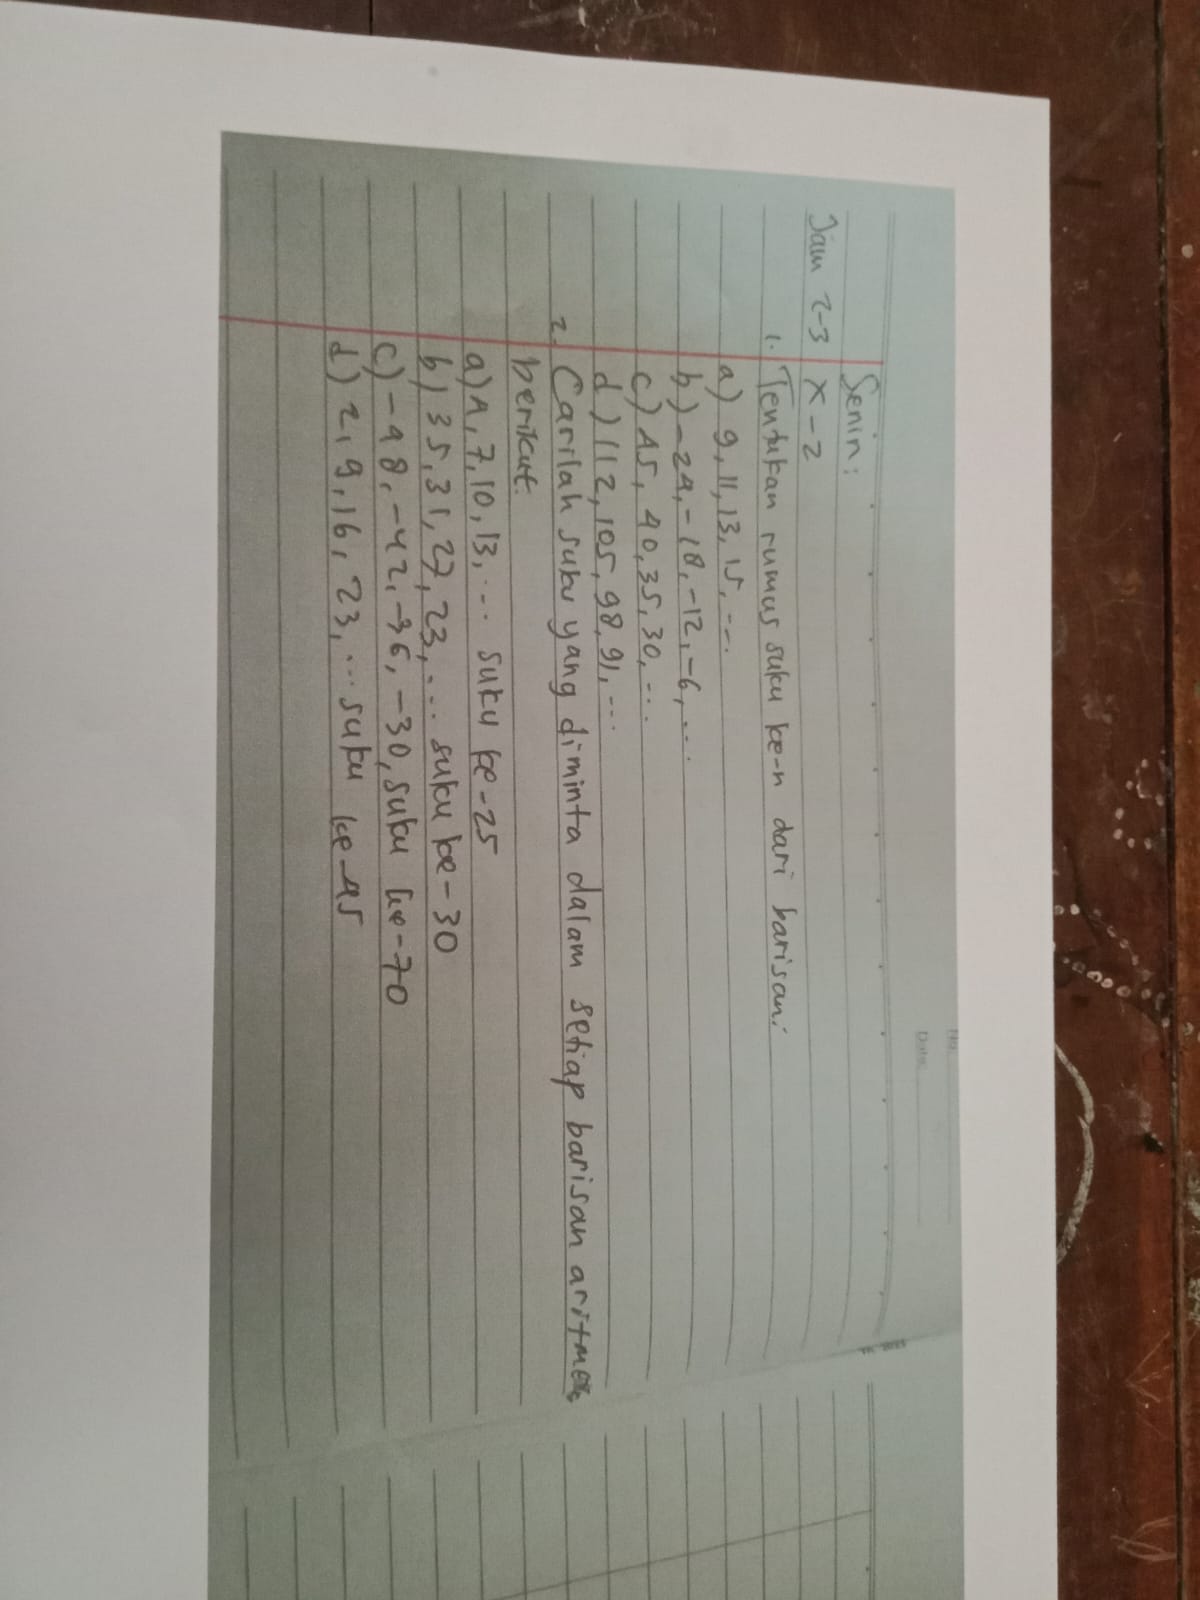 No
Date
Senin:
Jam 2-3 X-2
1. Tentukan rumus suku ke-n dari barisan:
a) 9, 11, 13, 15, ...
b) -24, -18, -12, -6, ...
c) 45, 40, 35, 30, ...
d) 112, 105, 98, 91, ...
2. Carilah suku yang diminta dalam setiap barisan aritmek
berikut.
a) 4, 7, 10, 13, ... suku ke-25
b) 35, 31, 27, 23, ... suku ke-30
c) -48, -42, -36, -30, suku ke-70
d) 2, 9, 16, 23, ... suku ke-45